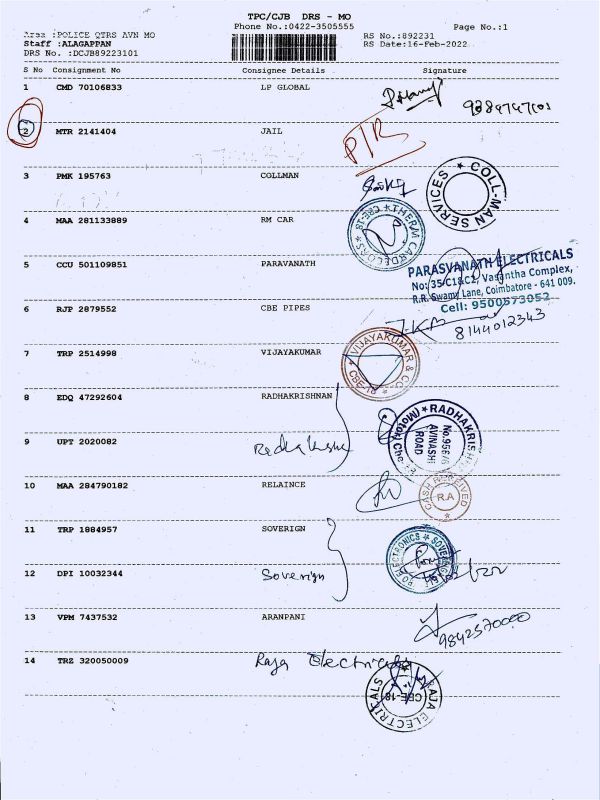 TPC/CJB DRS - MO
Phone No.:0422-3505555 Page No.:1
Area :POLICE QTRS AVN MO RS No.:892231
Staff :ALAGAPPAN RS Date:16-Feb-2022
DRS No. :DCJB89223101
S No Consignment No Consignee Details Signature
1 CMD 70106833 LP GLOBAL
2 MTR 2141404 JAIL P/R
3 PMK 195763 COLLMAN
COLL-MAN SERVICES
4 MAA 281133889 RM CAR
5 CCU 501109851 PARAVANATH
PARASVANATH ELECTRICALS
No: 35/C1&C2, Vasantha Complex,
R.R. Swamy Lane, Coimbatore - 641 009.
Cell: 9500573052
6 RJP 2879552 CBE PIPES
8144012343
7 TRP 2514998 VIJAYAKUMAR
VIJAYAKUMAR & CO
8 EDQ 47292604 RADHAKRISHNAN
(Motox) RADHAKRISH
No.956/6
AVINASHI
ROAD
9 UPT 2020082
10 MAA 284790182 RELAINCE
CASH RECEIVED
R.A
11 TRP 1884957 SOVERIGN
12 DPI 10032344 Soverign
13 VPM 7437532 ARANPANI
14 TRZ 320050009 Raja Electricals
RAJA ELECTRICALS
CBE-18